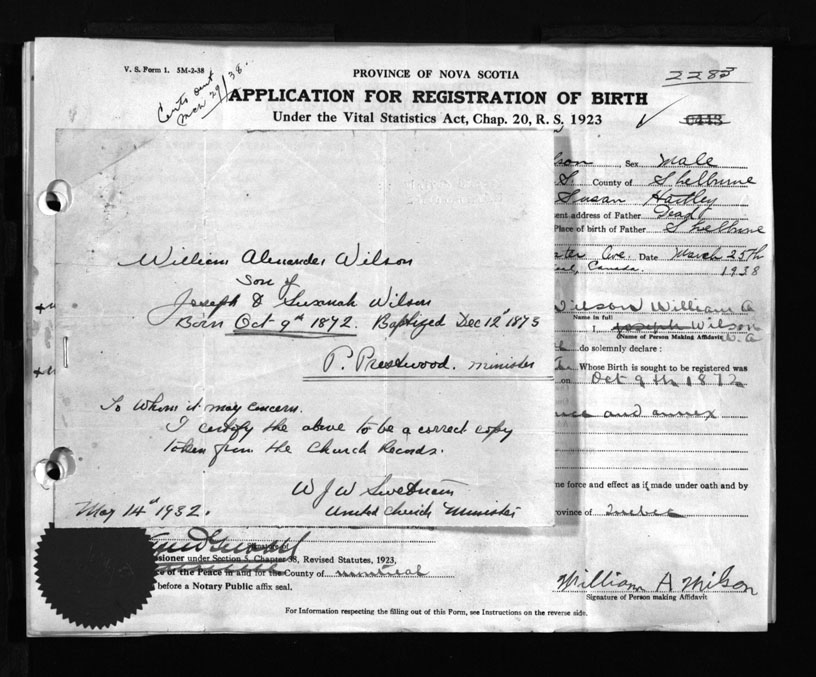 V. S. Form 1. 5M-2-38
Certs out
Mar 29/38.
PROVINCE OF NOVA SCOTIA
2283
APPLICATION FOR REGISTRATION OF BIRTH
Under the Vital Statistics Act, Chap. 20, R. S. 1923
son, Sex Male
S. County of Shelburne
Susan Hartley
ent address of Father Dead
Place of birth of Father Shelburne
Ave. Date March 25th
Canada. 1938
William Alexander Wilson
Son of
Joseph & Susanah Wilson
Born Oct 9th 1872. Baptized Dec 12th 1873
P. Prestwood. minister
To Whom it may concern.
I certify the above to be a correct copy
taken from the Church Records.
W J W Swetnam
May 14th 1932. United Church Minister
Wilson William A
Name in full
I, Joseph Wilson
Name of Person Making Affidavit
do solemnly declare:
Whose Birth is sought to be registered was
on Oct 9th 1872
and annex
me force and effect as if made under oath and by
rovince of Quebec
sioner under Section 5, Chapter 38, Revised Statutes, 1923,
of the Peace in and for the County of Montreal
before a Notary Public affix seal.
William A Wilson
Signature of Person making Affidavit
For Information respecting the filling out of this Form, see Instructions on the reverse side.